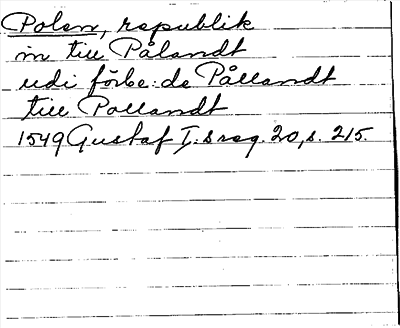 Polen, republik
in till Pålandt
udi förbe:de Pållandt
till Pollandt
1549 Gustaf I:s reg. 20, s. 215.